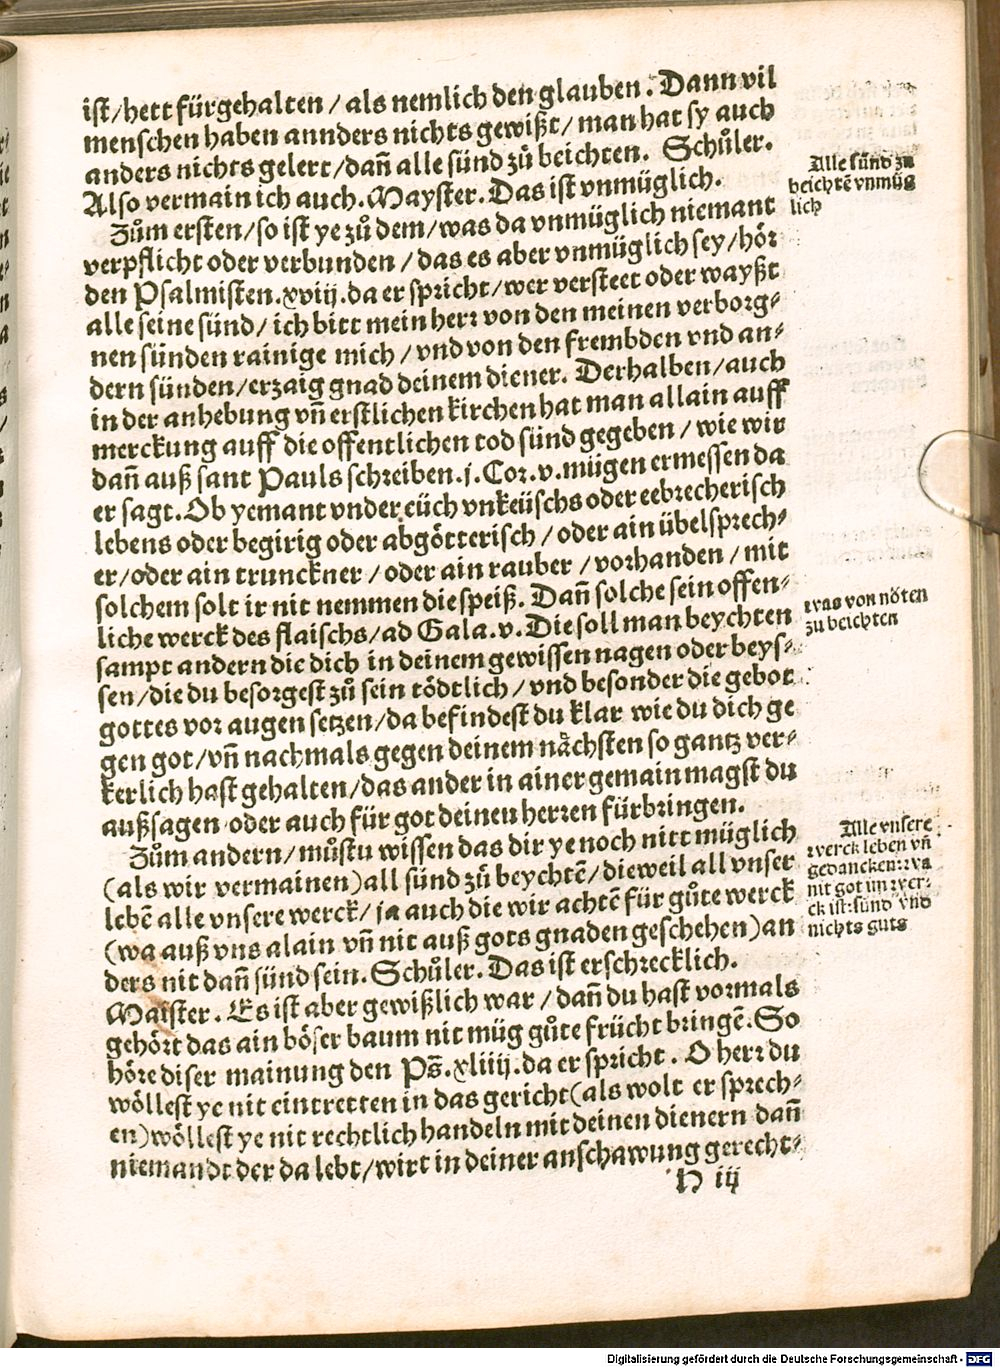 ist/hett fürgehalten/als nemlich den glauben. Dann vil
menschen haben annders nichts gewißt/man hat sy auch
anders nichts gelert/dañ alle sünd zů beichten. Schůler.
Also vermain ich auch. Mayster. Das ist vnmüglich.
Alle sünd zu
beichtē vnmüg
lich
Zům ersten/so ist ye zů dem/was da vnmüglich niemant
verpflicht oder verbunden/das es aber vnmüglich sey/hör
den Psalmisten.xviij.da er spricht/wer versteet oder wayßt
alle seine sünd/ich bitt mein herr von den meinen verborg⸗
nen sünden rainige mich/vnd von den frembden vnd an⸗
dern sünden/erzaig gnad deinem diener. Derhalben/auch
in der anhebung vñ erstlichen kirchen hat man allain auff
merckung auff die offentlichen tod sünd gegeben/wie wir
dañ auß sant Pauls schreiben.j.Cor.v.mügen ermessen da
er sagt. Ob yemant vnder eüch vnkeüschs oder eebrecherisch
lebens oder begirig oder abgötterisch/oder ain übelsprech⸗
er/oder ain trunckner/oder ain rauber/vorhanden/mit
solchem solt ir nit nemmen die speiß. Dañ solche sein offen⸗
liche werck des flaischs/ad Gala.v. Die soll man beychten
was von nöten
zu beichten
sampt andern die dich in deinem gewissen nagen oder beys⸗
sen/die du besorgest zů sein tödtlich/vnd besonder die gebot
gottes vor augen setzen/da befindest du klar wie du dich ge
gen got/vñ nachmals gegen deinem nächsten so gantz ver⸗
kerlich hast gehalten/das ander in ainer gemain magst du
außsagen oder auch für got deinen herren fürbringen.
Zům andern/můstu wissen das dir ye noch nitt müglich
(als wir vermainen)all sünd zů beychtē/dieweil all vnser
lebē alle vnsere werck/ja auch die wir achtē für gůte werck
(wa auß vns alain vñ nit auß gots gnaden geschehen)an
ders nit dañ sünd sein. Schůler. Das ist erschrecklich.
Alle vnsere
werck leben vñ
gedancken: wa
nit got im wer⸗
ck ist: sünd vnd
nichts guts
Maister. Es ist aber gewißlich war/dañ du hast vormals
gehört das ain böser baum nit müg gůte frücht bringē. So
höre diser mainung den Ps̄.xliiij.da er spricht. O herr du
wöllest ye nit eintretten in das gericht(als wolt er sprech⸗
en)wöllest ye nit rechtlich handeln mit deinen dienern dañ
niemandt der da lebt/wirt in deiner anschawung gerecht⸗
N iij
Digitalisierung gefördert durch die Deutsche Forschungsgemeinschaft - DFG